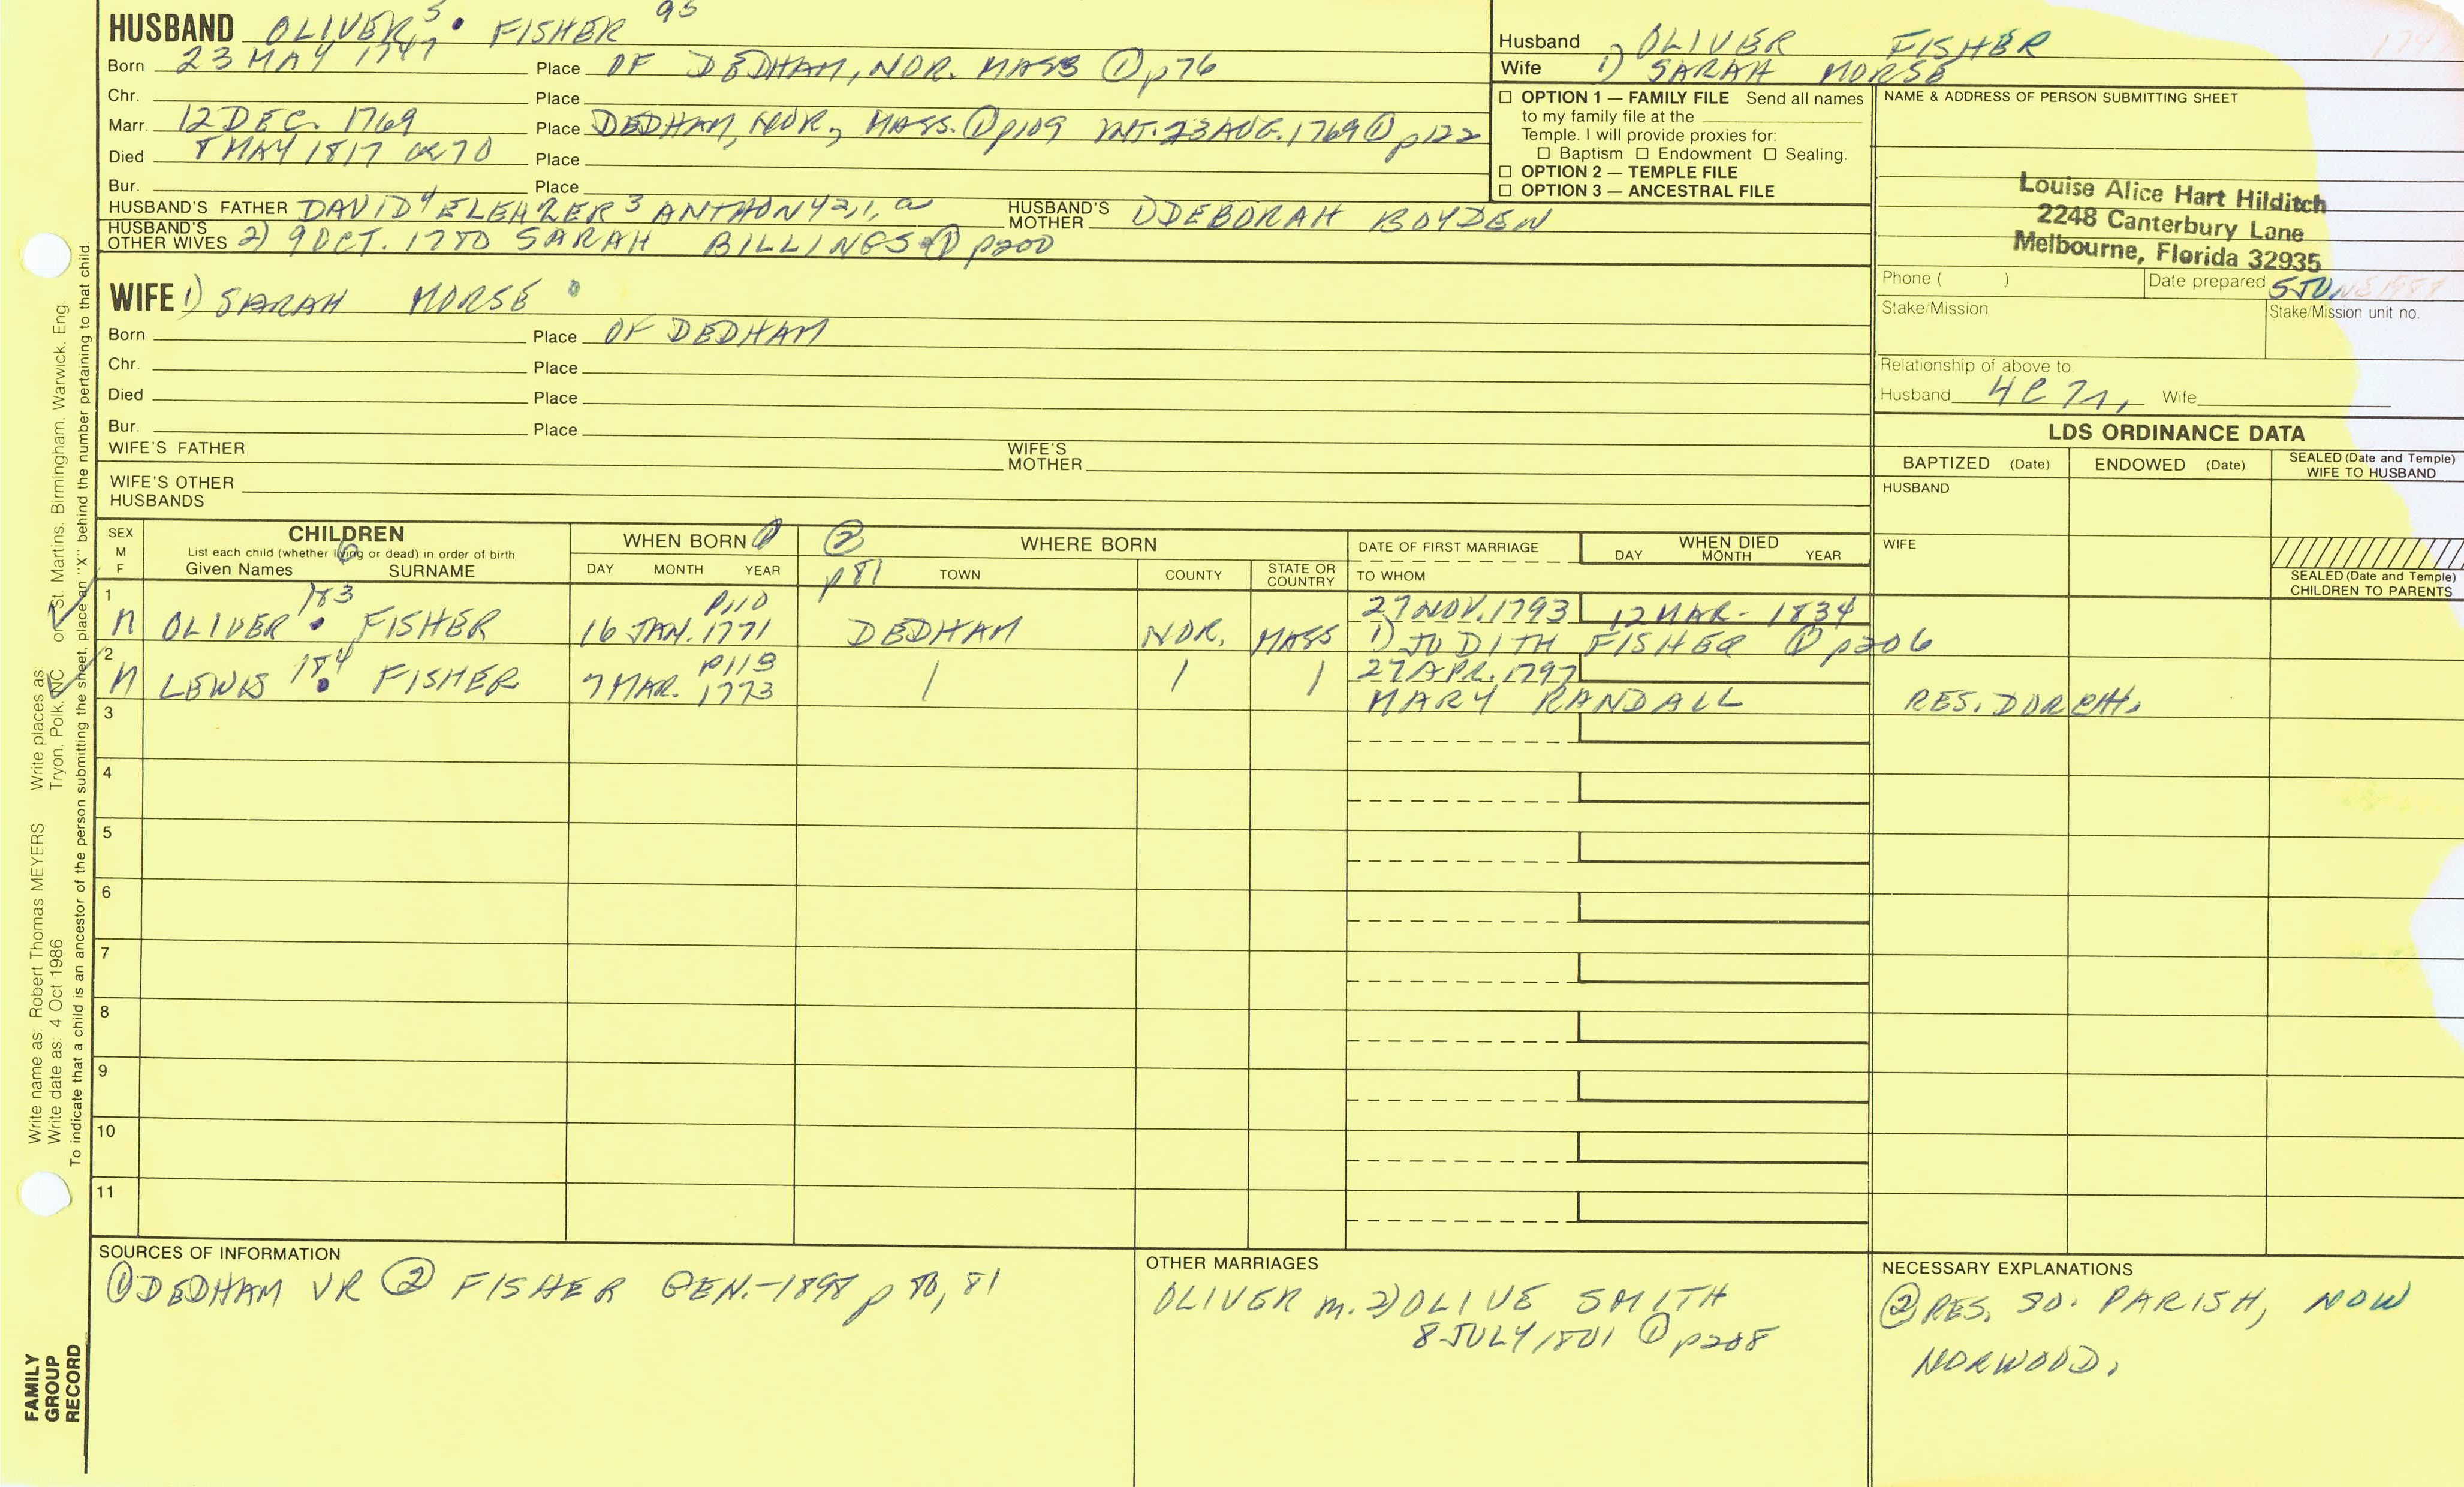 HUSBAND OLIVER 5 • FISHER 95
Born 23 MAY 1747 Place OF DEDHAM, NOR. MASS ① p76
Chr. Place
Marr. 12 DEC. 1769 Place DEDHAM, NOR., MASS. ① p109 INT. 23 AUG. 1769 ① p122
Died 8 MAY 1817 ae 70 Place
Bur. Place
HUSBAND'S FATHER DAVID 4 ELEAZER 3 ANTHONY 2,1, a HUSBAND'S MOTHER 1) DEBORAH BOYDEN
HUSBAND'S OTHER WIVES 2) 9 OCT. 1780 SARAH BILLINGS ① p200
Husband OLIVER FISHER
Wife 1) SARAH MORSE
☐ OPTION 1 — FAMILY FILE Send all names
to my family file at the
Temple. I will provide proxies for:
☐ Baptism ☐ Endowment ☐ Sealing.
☐ OPTION 2 — TEMPLE FILE
☐ OPTION 3 — ANCESTRAL FILE
NAME & ADDRESS OF PERSON SUBMITTING SHEET
Louise Alice Hart Hilditch
2248 Canterbury Lane
Melbourne, Florida 32935
Phone ( ) Date prepared 5 JUNE
Stake/Mission Stake/Mission unit no.
Relationship of above to
Husband 4C7r, Wife
WIFE 1) SARAH MORSE
Born Place OF DEDHAM
Chr. Place
Died Place
Bur. Place
WIFE'S FATHER WIFE'S MOTHER
WIFE'S OTHER HUSBANDS
LDS ORDINANCE DATA
BAPTIZED (Date) ENDOWED (Date) SEALED (Date and Temple) WIFE TO HUSBAND
HUSBAND
WIFE
SEALED (Date and Temple) CHILDREN TO PARENTS
SEX M F CHILDREN List each child (whether living or dead) in order of birth Given Names SURNAME
WHEN BORN ① DAY MONTH YEAR
② p81 WHERE BORN TOWN COUNTY STATE OR COUNTRY
DATE OF FIRST MARRIAGE TO WHOM
WHEN DIED DAY MONTH YEAR
1 183 p110 27 NOV. 1793 12 MAR - 1834
M OLIVER • FISHER 16 JAN. 1771 DEDHAM NOR. MASS 1) JUDITH FISHER ① p206
2 184 p113 27 APR. 1797
M LEWIS • FISHER 7 MAR. 1773 / / / MARY RANDALL RES. DORCH.
3
4
5
6
7
8
9
10
11
SOURCES OF INFORMATION
① DEDHAM VR ② FISHER GEN.-1898 p 80, 81
OTHER MARRIAGES
OLIVER m. 2) OLIVE SMITH
8 JULY 1801 ① p208
NECESSARY EXPLANATIONS
② RES. SO. PARISH, NOW
NORWOOD.
Write name as: Robert Thomas MEYERS Write places as: Tryon, Polk, NC or St. Martins, Birmingham, Warwick, Eng.
Write date as: 4 Oct 1986
To indicate that a child is an ancestor of the person submitting the sheet, place an "X" behind the number pertaining to that child.
FAMILY
GROUP
RECORD